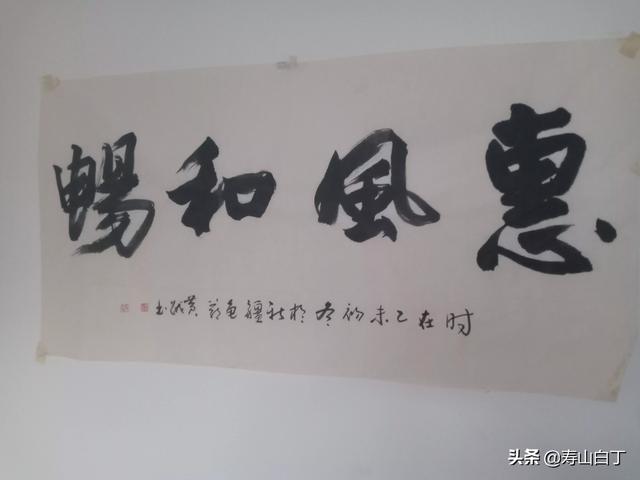 惠風和暢
时在乙未初冬於新疆龟兹黄书
头条 @寿山白丁